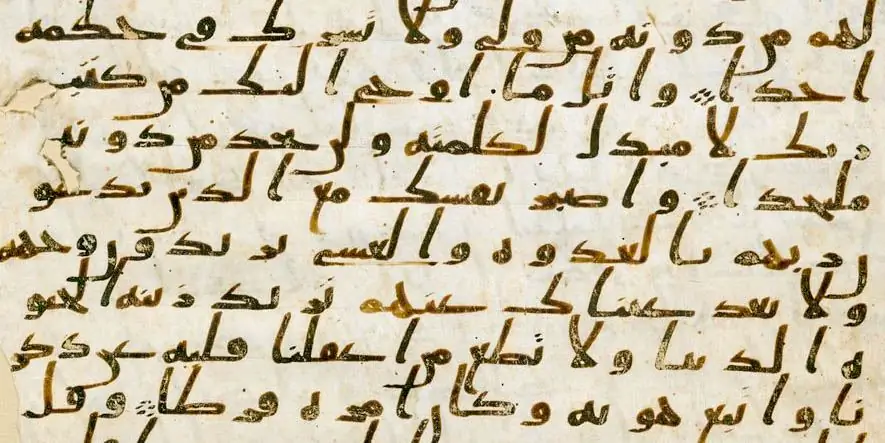 لهم من دونه من ولى ولا تشرك فى حكمه
احدا واتل ما اوحى اليك من كتب
ربك لا مبدل لكلمته ولن تجد من دونه
ملتحدا واصبر نفسك مع الذين يدعو
ن ربهم بالغدوه والعشى يريدون وجهه
ولا تعد عيناك عنهم تريد زينه الحيو
ه الدنيا ولا تطع من اغفلنا قلبه عن ذكر
نا واتبع هويه وكان امره فرطا وقل